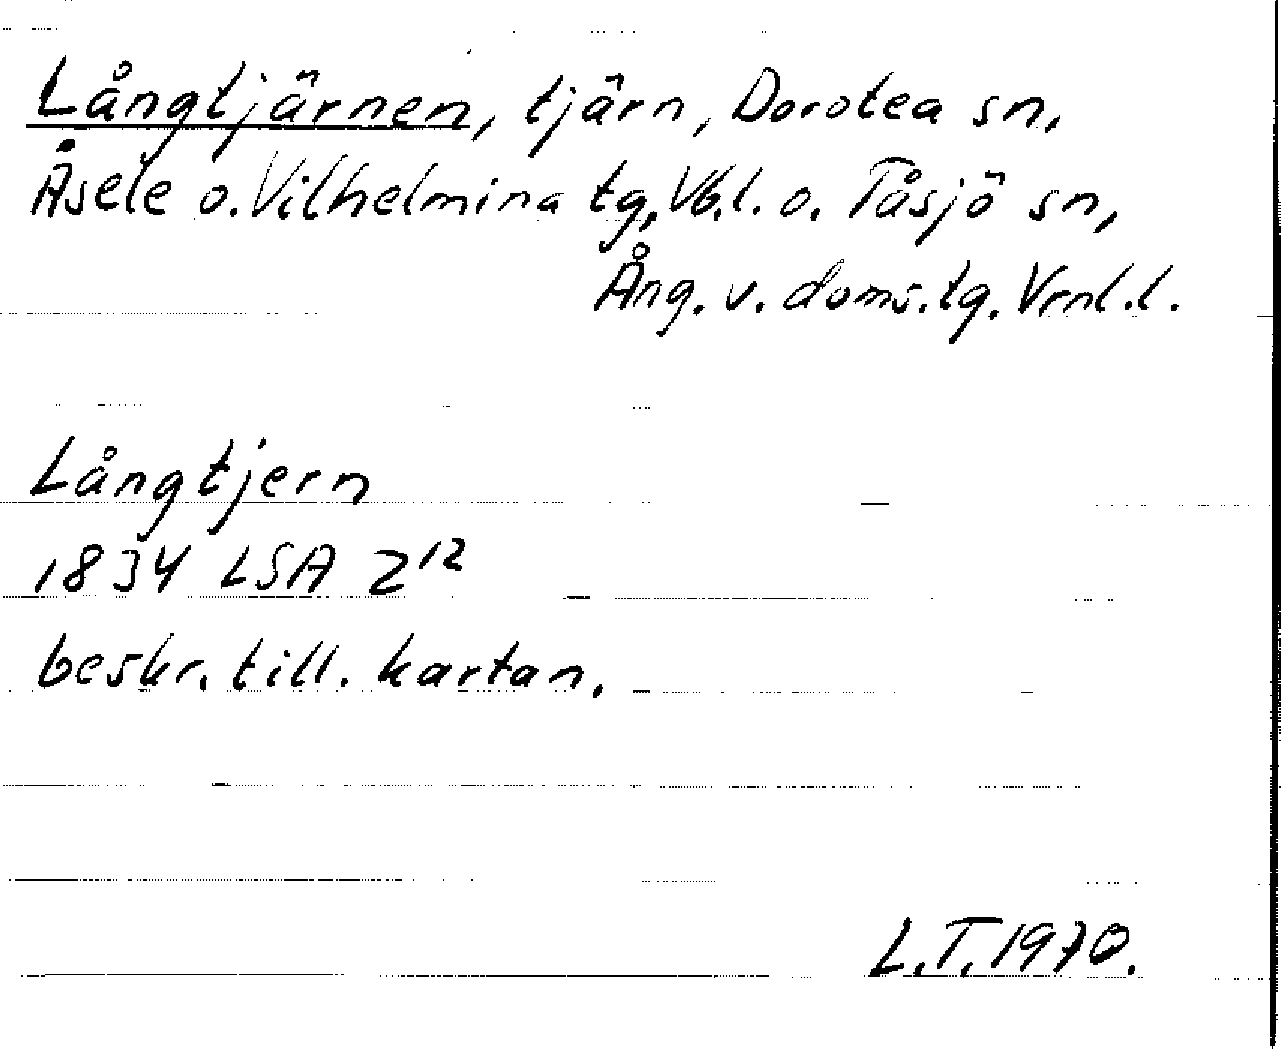 Långtjärnen, tjärn, Dorotea sn,
Åsele o. Vilhelmina tg, Vb.l. o. Tåsjö sn,
Ång. v. doms.tg. Vrnl.l.
Långtjern
1834 LSA Z¹²
beskr. till. kartan.
L.T. 1970.